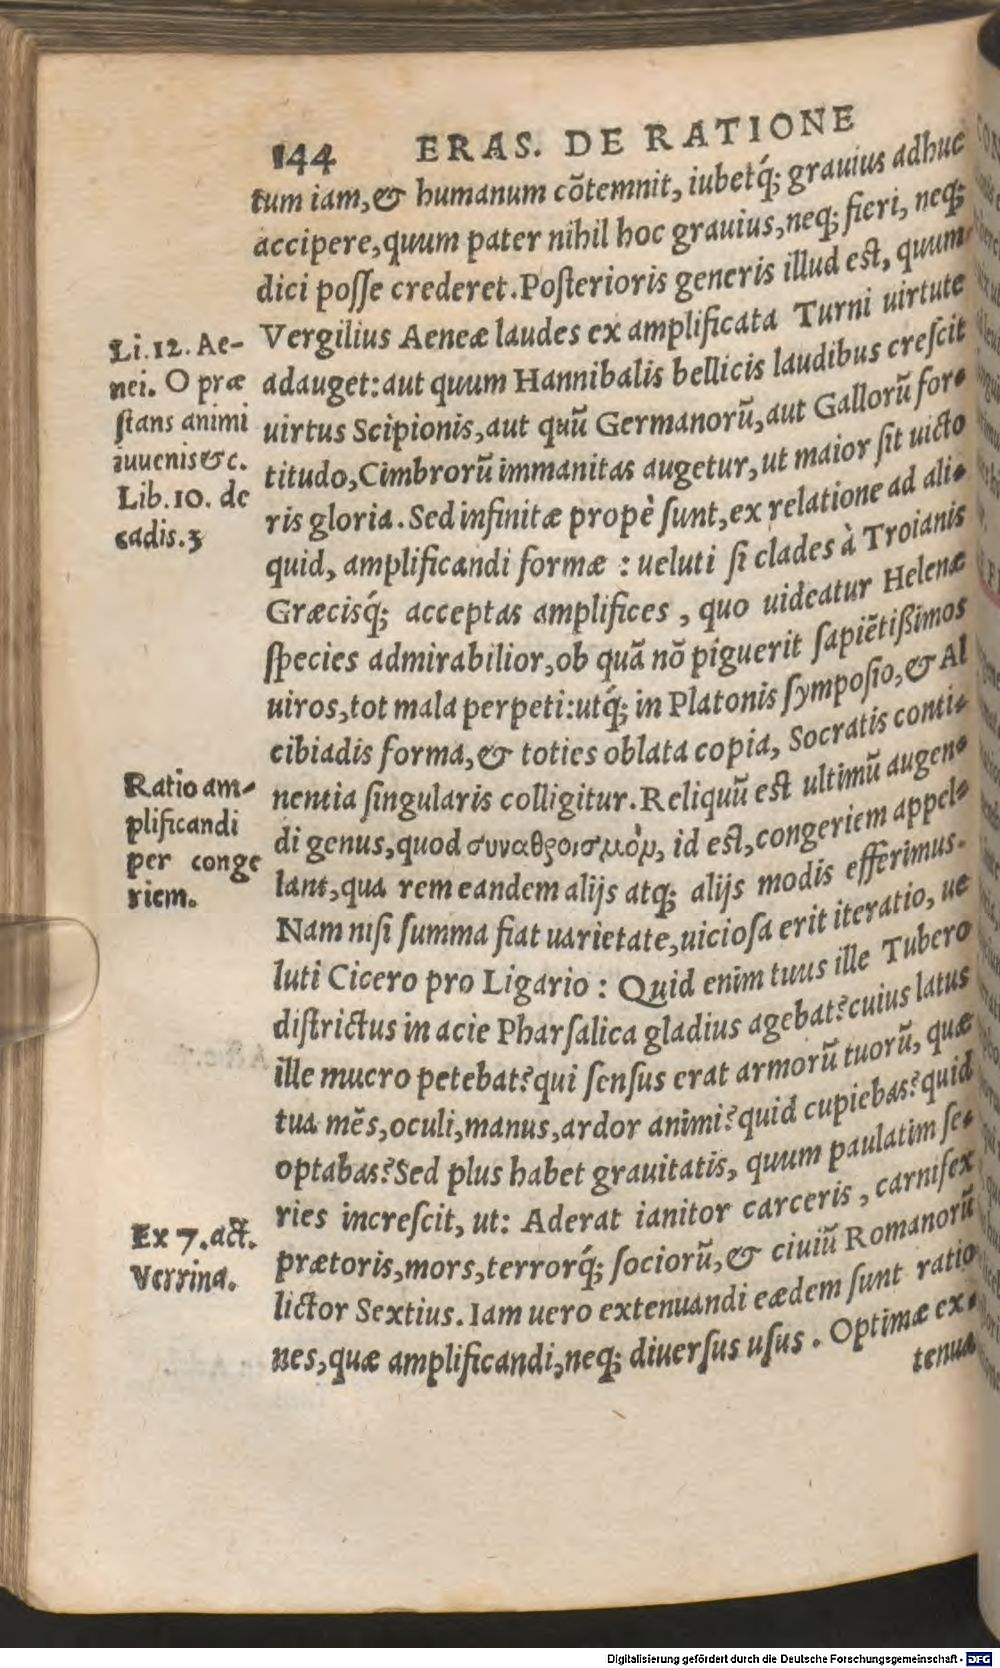 144 ERAS. DE RATIONE
tum iam, & humanum cõtemnit, iubetq́; grauius adhuc
accipere, quum pater nihil hoc grauius, neq; fieri, neq;
dici posse crederet. Posterioris generis illud est, quum
Vergilius Aeneæ laudes ex amplificata Turni uirtute
adauget: aut quum Hannibalis bellicis laudibus crescit
uirtus Scipionis, aut quũ Germanorũ, aut Gallorũ for-
titudo, Cimbrorũ immanitas augetur, ut maior sit uicto
ris gloria. Sed infinitæ propè sunt, ex relatione ad ali-
quid, amplificandi formæ : ueluti si clades à Troianis
Græcisq́; acceptas amplifices, quo uideatur Helenæ
species admirabilior, ob quã nõ piguerit sapiẽtißimos
uiros, tot mala perpeti: utq́; in Platonis symposio, & Al
cibiadis forma, & toties oblata copia, Socratis conti-
nentia singularis colligitur. Reliquũ est ultimũ augen-
di genus, quod συναθροισμὸμ, id est, congeriem appel-
lant, qua rem eandem alijs atq; alijs modis efferimus.
Nam nisi summa fiat uarietate, uiciosa erit iteratio, ue
luti Cicero pro Ligario : Quid enim tuus ille Tubero
districtus in acie Pharsalica gladius agebat? cuius latus
ille mucro petebat? qui sensus erat armorũ tuorũ, quæ
tua mẽs, oculi, manus, ardor animi? quid cupiebas? quid
optabas? Sed plus habet grauitatis, quum paulatim se-
ries increscit, ut: Aderat ianitor carceris, carnifex
prætoris, mors, terrorq́; sociorũ, & ciuiũ Romanorũ
lictor Sextius. Iam uero extenuandi eædem sunt ratio
nes, quæ amplificandi, neq; diuersus usus. Optimæ ex-
tenua
Li.12. Ae-
nei. O præ
stans animi
iuuenis &c.
Lib.10. de
cadis.3
Ratio am-
plificandi
per conge
riem.
Ex 7. act.
Verrina.
Digitalisierung gefördert durch die Deutsche Forschungsgemeinschaft - DFG